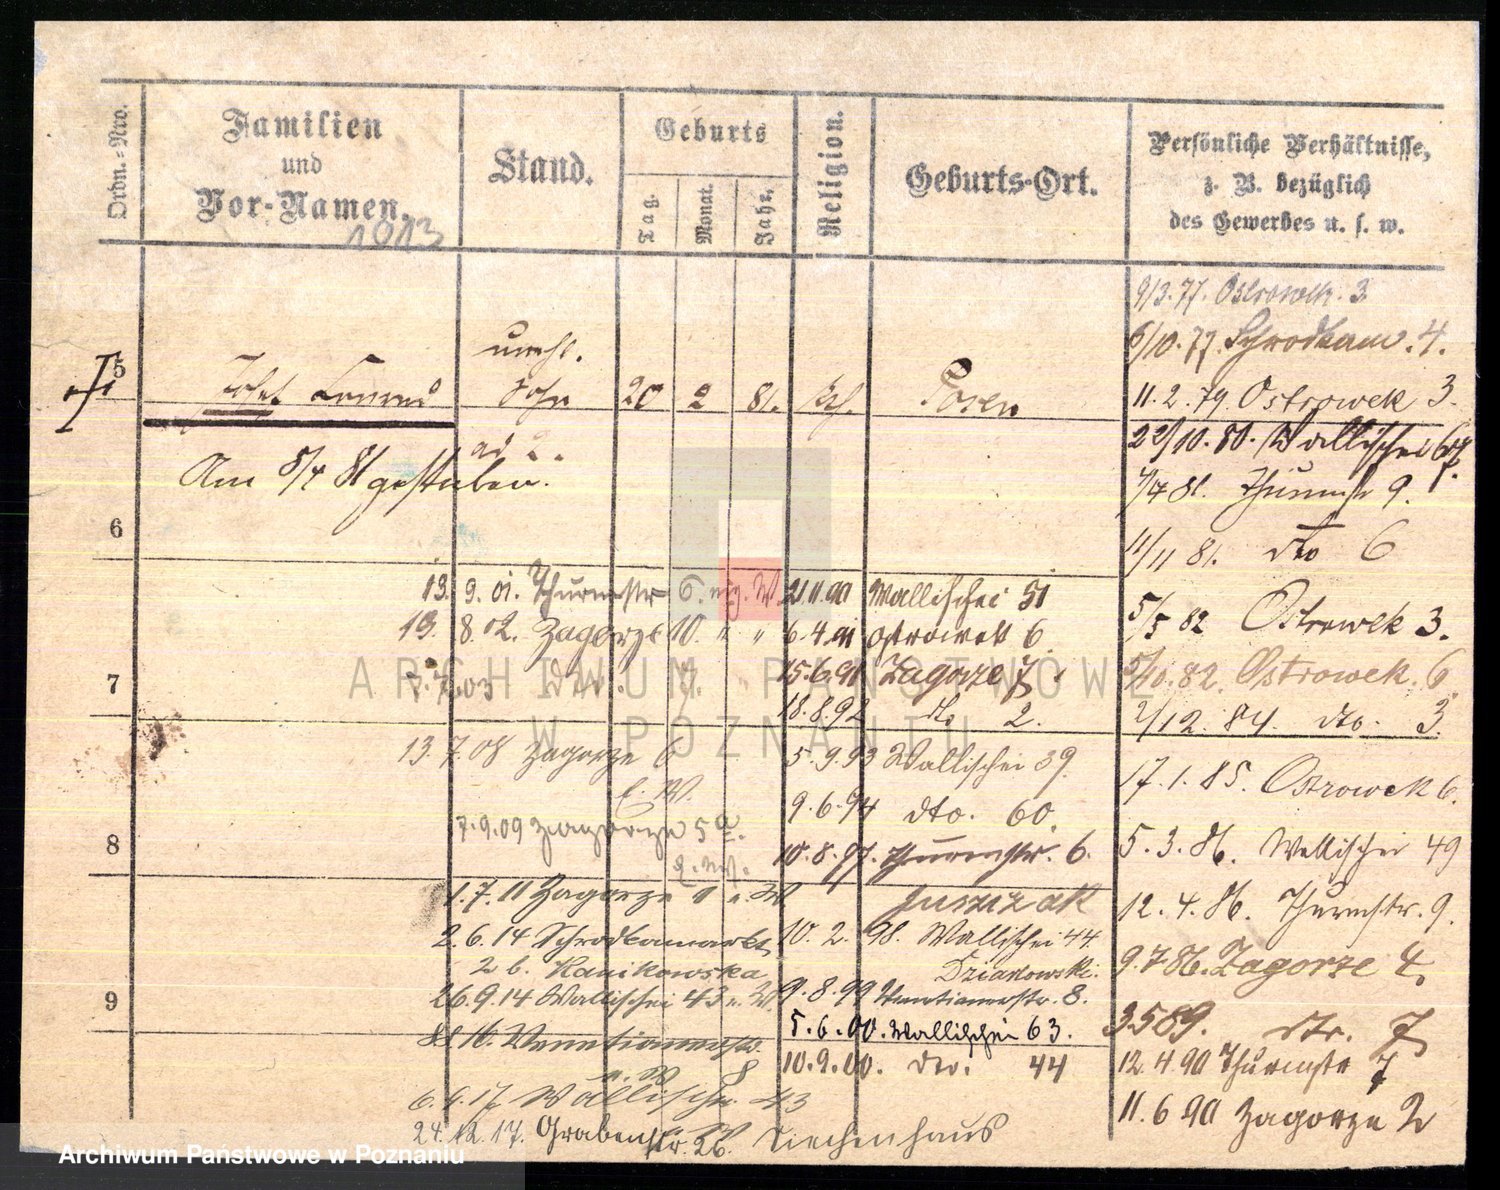 Ordn.-Nro.
Familien
und
Vor-Namen.
1913
Stand.
Geburts
Tag.
Monat.
Jahr.
Religion.
Geburts-Ort.
Persönliche Verhältnisse,
z. B. bezüglich
des Gewerbes u. s. w.
5
unehl.
Sohn 20 2 81. Posen
Am 5/4 81 gestorben.
6
7
8
9
13. 9. 01. Thurmstr 6.
13. 8. 02. Zagorze 10. " "
7. 7. 03 dto. 7.
13. 7. 08 Zagorze 6
E. W.
7. 9. 09 Zagorze 5a.
E. W.
1. 7. 11 Zagorze
2. 6. 14 Schrodkamarkt
2 b. Kanikowska
26. 9. 14 Wallischei 43
16. Venetianerstr.
8
6. 6. 17 Wallischei 43
24. 12. 17. Grabenstr. 26. Siechenhaus
21. 11. 90 Wallischei 51
6. 4. 91 Ostrowek 6.
15. 6. 91 Zagorze 7
18. 8. 92 do 2.
5. 9. 93 Wallischei 39.
9. 6. 94 dto. 60.
10. 8. 97. Thurmstr. 6.
Juszczak
10. 2. 98. Wallischei 44.
Dziakowski.
9. 8. 99 Venetianerstr. 8.
5. 6. 00. Wallischei 63.
10. 9. 00. dto. 44
9/3. 77. Ostrowek. 3
6/10. 77. Schrodkam. 4.
11. 2. 79. Ostrowek 3.
22/10. 80. Wallischei 67
4/4 81. Thurmstr 9.
11/11 81. dto 6
5/5 82 Ostrowek 3.
5/10. 82. Ostrowek. 6
2/12. 84. dto. 3.
17. 1. 85. Ostrowek 6.
5. 3. 86. Wallischei 49
12. 4. 86. Thurmstr. 9.
9. 7 86. Zagorze 4
3 5 89. dto. 7
12. 4. 90 Thurmstr 7
11. 6 90 Zagorze 2
ARCHIWUM PAŃSTWOWE
W POZNANIU
Archiwum Państwowe w Poznaniu